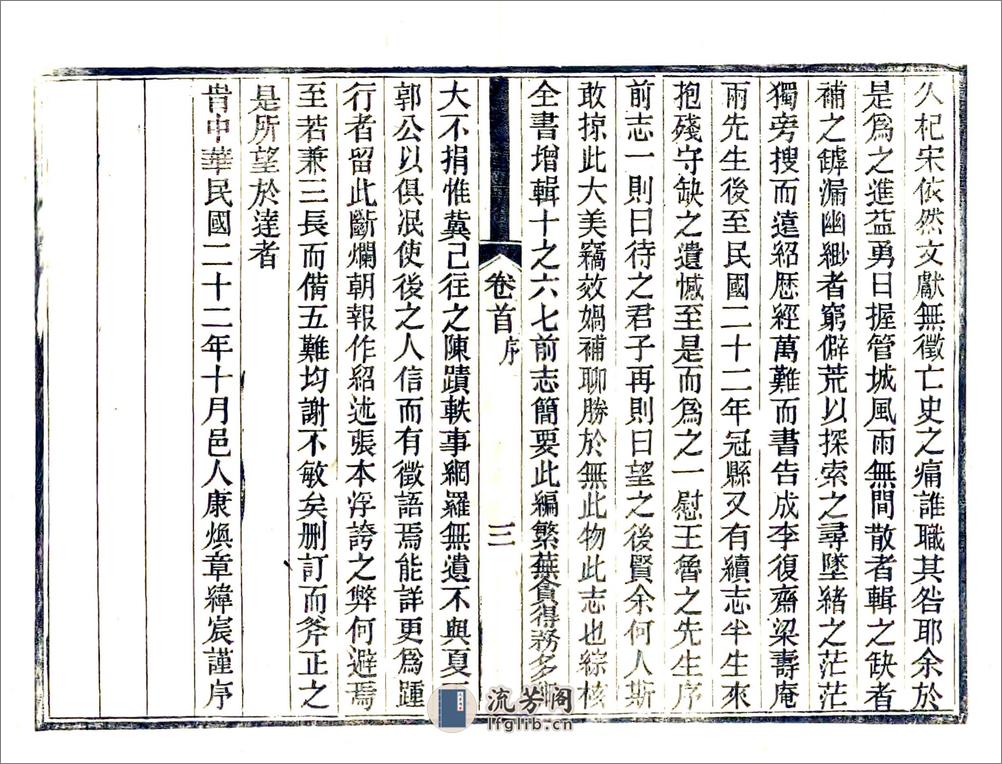 久杞宋依然文獻無徵亡史之痛誰職其咎耶余於
是爲之進益勇日握管城風雨無間散者輯之缺者
補之罅漏幽緲者窮僻荒以探索之尋墜緒之茫茫
獨旁搜而遠紹歷經萬難而書告成李復齋梁壽庵
兩先生後至民國二十二年冠縣又有續志半生來
抱殘守缺之遺憾至是而爲之一慰王魯之先生序
前志一則曰待之君子再則曰望之後賢余何人斯
敢掠此大美竊效媧補聊勝於無此物此志也綜核
全書增輯十之六七前志簡要此編繁蕪貪得務多
卷首 序 三
大不捐惟冀己往之陳蹟軼事網羅無遺不與夏
郭公以俱泯使後之人信而有徵語焉能詳更爲踵
行者留此斷爛朝報作紹述張本浮誇之弊何避焉
至若兼三長而備五難均謝不敏矣删訂而斧正之
是所望於達者
旹中華民國二十二年十月邑人康煥章緯宸謹序
流芳阁
lfglib.cn